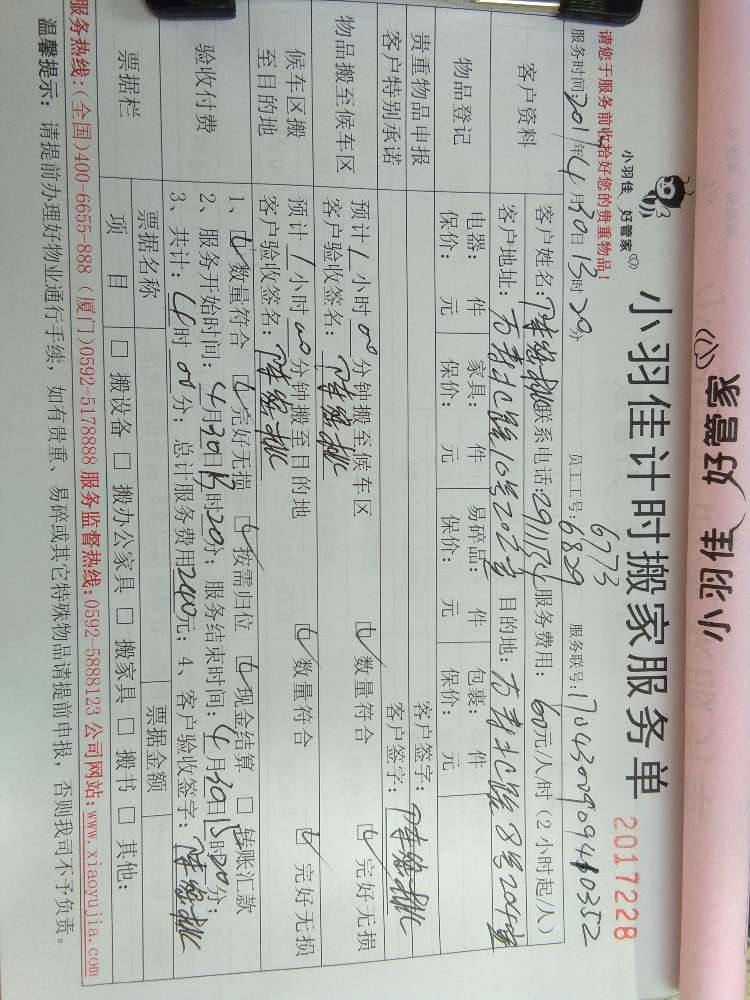 小羽佳 好管家
小羽佳 好管家
小羽佳计时搬家服务单
2017228
请您于服务前收拾好您的贵重物品！
服务时间:2017年4月30日13时20分 员工工号: 6773 6829 服务联号:
客户资料
客户姓名: 联系电话: 服务费用: 60元/人/时（2小时起/人）
客户地址:万寿北路10号202室 目的地:万寿北路8号204室
物品登记
电器: 件 家具: 件 易碎品: 件 包裹: 件
保价: 元 保价: 元 保价: 元 保价: 元
贵重物品申报 客户签字:
客户特别承诺 客户签字:
物品搬至候车区
预计1小时00分钟搬至候车区 数量符合 完好无损
客户验收签名:
候车区搬至目的地
预计1小时00分钟搬至目的地 数量符合 完好无损
客户验收签名:
验收付费
1、数量符合 完好无损 按需归位 现金结算 □ 转账汇款
2、服务开始时间:4月30日13时20分；服务结束时间:4月30日15时20分；
3、共计:4时00分；总计服务费用240元；4、客户验收签字:
票据栏
票据名称 票据金额
项目 □ 搬设备 □ 搬办公家具 □ 搬家具 □ 搬书 □ 其他:
服务热线:(全国)400-6655-888 (厦门)0592-5178888 服务监督热线:0592-5888123 公司网站:www.xiaoyujia.com
温馨提示: 请提前办理好物业通行手续，如有贵重、易碎或其它特殊物品请提前申报，否则我司不予负责。